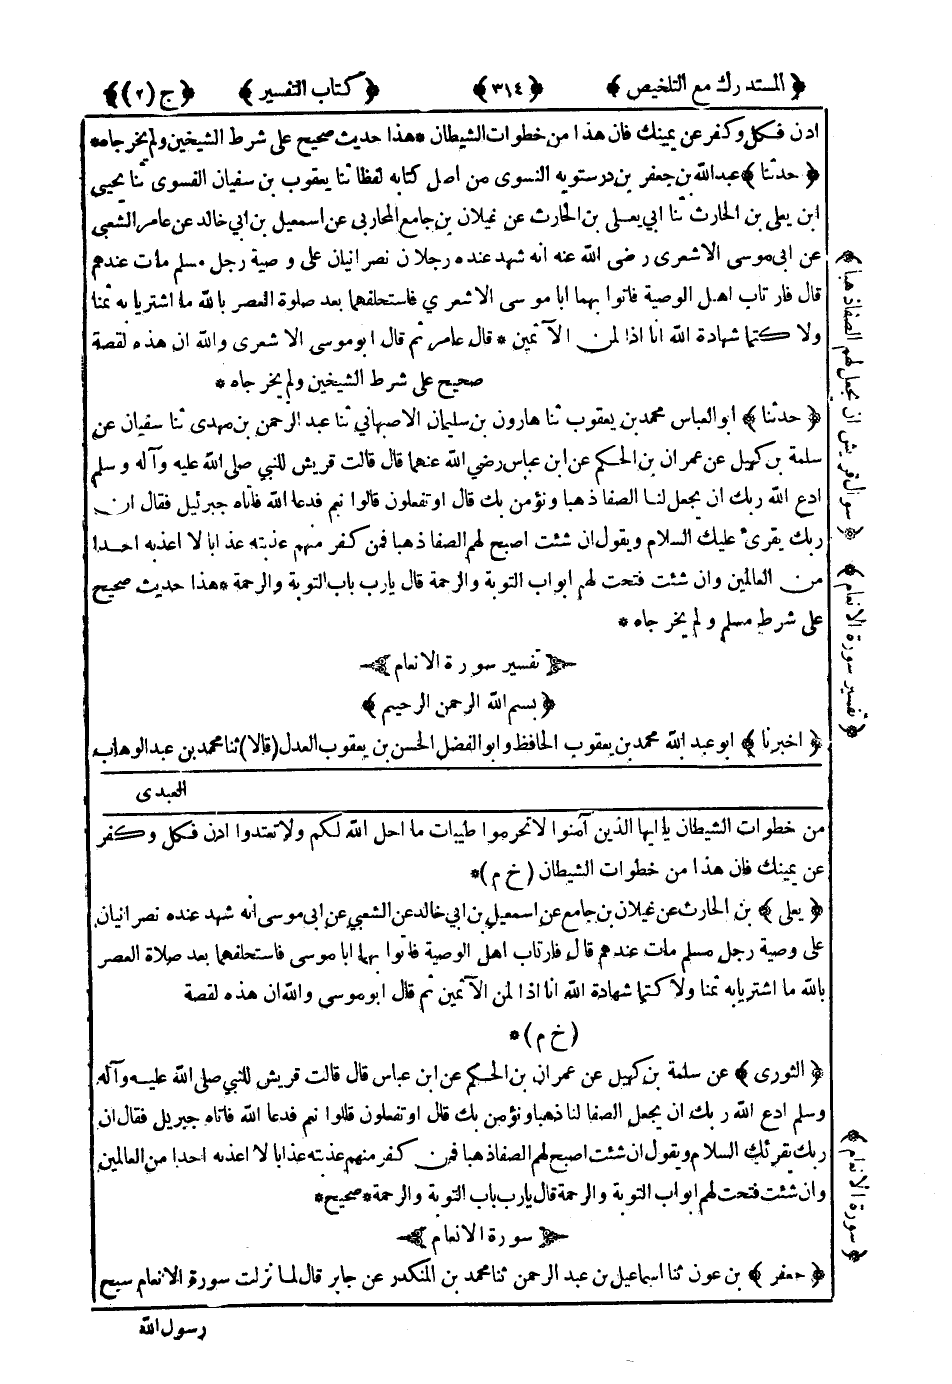 ﴿ المستدرك مع التلخيص ﴾ ﴿٣١٤﴾ ﴿ كتاب التفسير ﴾ ﴿ ج (٢) ﴾
ادن فكل وكفر عن يمينك فان هذا من خطوات الشيطان * هذا حديث صحيح على شرط الشيخين ولم يخرجاه *
﴿ حدثنا ﴾ عبدالله بن جعفر بن درستويه النسوى من اصل كتابه لفظا ثنا يعقوب بن سفيان الفسوى ثنا يحيى
ابن يعلى بن الحارث ثنا ابي يعلى بن الحارث عن غيلان بن جامع المحاربى عن اسمعيل بن ابي خالد عن عامر الشعبي
عن ابى موسى الاشعرى رضى الله عنه انه شهد عنده رجلان نصرانيان على وصية رجل مسلم مات عندهم
قال فارتاب اهل الوصية فاتوا بهما ابا موسى الاشعري فاستحلفهما بعد صلوة العصر بالله ما اشتريا به ثمنا
ولا كتما شهادة الله انا اذا لمن الآثمين * قال عامر ثم قال ابوموسى الاشعرى والله ان هذه لقصة
صحيح على شرط الشيخين ولم يخرجاه *
﴿ حدثنا ﴾ ابو العباس محمد بن يعقوب ثنا هارون بن سليمان الاصبهاني ثنا عبد الرحمن بن مهدى ثنا سفيان عن
سلمة بن كهيل عن عمران بن الحكم عن ابن عباس رضي الله عنهما قال قالت قريش للنبي صلى الله عليه وآله وسلم
ادع الله ربك ان يجعل لنا الصفا ذهبا ونؤمن بك قال او تفعلون قالوا نعم فدعا الله فاتاه جبرئيل فقال ان
ربك يقرئ عليك السلام ويقول ان شئت اصبح لهم الصفا ذهبا فمن كفر منهم عذبته عذابا لا اعذبه احدا
من العالمين وان شئت فتحت لهم ابواب التوبة والرحمة قال يارب باب التوبة والرحمة * هذا حديث صحيح
على شرط مسلم ولم يخرجاه *
تفسير سورة الانعام
﴿ بسم الله الرحمن الرحيم ﴾
﴿ اخبرنا ﴾ ابو عبد الله محمد بن يعقوب الحافظ وابو الفضل الحسن بن يعقوب العدل (قالا) ثنا محمد بن عبد الوهاب
العبدى
من خطوات الشيطان يا ايها الذين آمنوا لا تحرموا طيبات ما احل الله لكم ولا تعتدوا ادن فكل وكفر
عن يمينك فان هذا من خطوات الشيطان (خ م) *
﴿ يعلى ﴾ بن الحارث عن غيلان بن جامع عن اسمعيل بن ابي خالد عن الشعبي عن ابى موسى انه شهد عنده نصرانيان
على وصية رجل مسلم مات عندهم قال فارتاب اهل الوصية فاتوا بهما ابا موسى فاستحلفهما بعد صلاة العصر
بالله ما اشتريا به ثمنا ولا كتما شهادة الله انا اذا لمن الآثمين ثم قال ابو موسى والله ان هذه لقصة
(خ م) *
﴿ الثورى ﴾ عن سلمة بن كهيل عن عمران بن الحكم عن ابن عباس قال قالت قريش للنبي صلى الله عليه وآله
وسلم ادع الله ربك ان يجعل الصفا لنا ذهبا ونؤمن بك قال او تفعلون قالوا نعم فدعا الله فاتاه جبريل فقال ان
ربك يقرئك السلام ويقول ان شئت اصبح لهم الصفا ذهبا فمن كفر منهم عذبته عذابا لا اعذبه احدا من العالمين
وان شئت فتحت لهم ابواب التوبة والرحمة قال يارب باب التوبة والرحمة * صحيح *
سورة الانعام
﴿ جعفر ﴾ بن عون ثنا اسماعيل بن عبد الرحمن ثنا محمد بن المنكدر عن جابر قال لما نزلت سورة الانعام سبح
رسول الله
﴿ سوال قريش ان يجعل لهم الصفا ذهبا ﴾
﴿ تفسير سورة الانعام ﴾
﴿ سورة الانعام ﴾